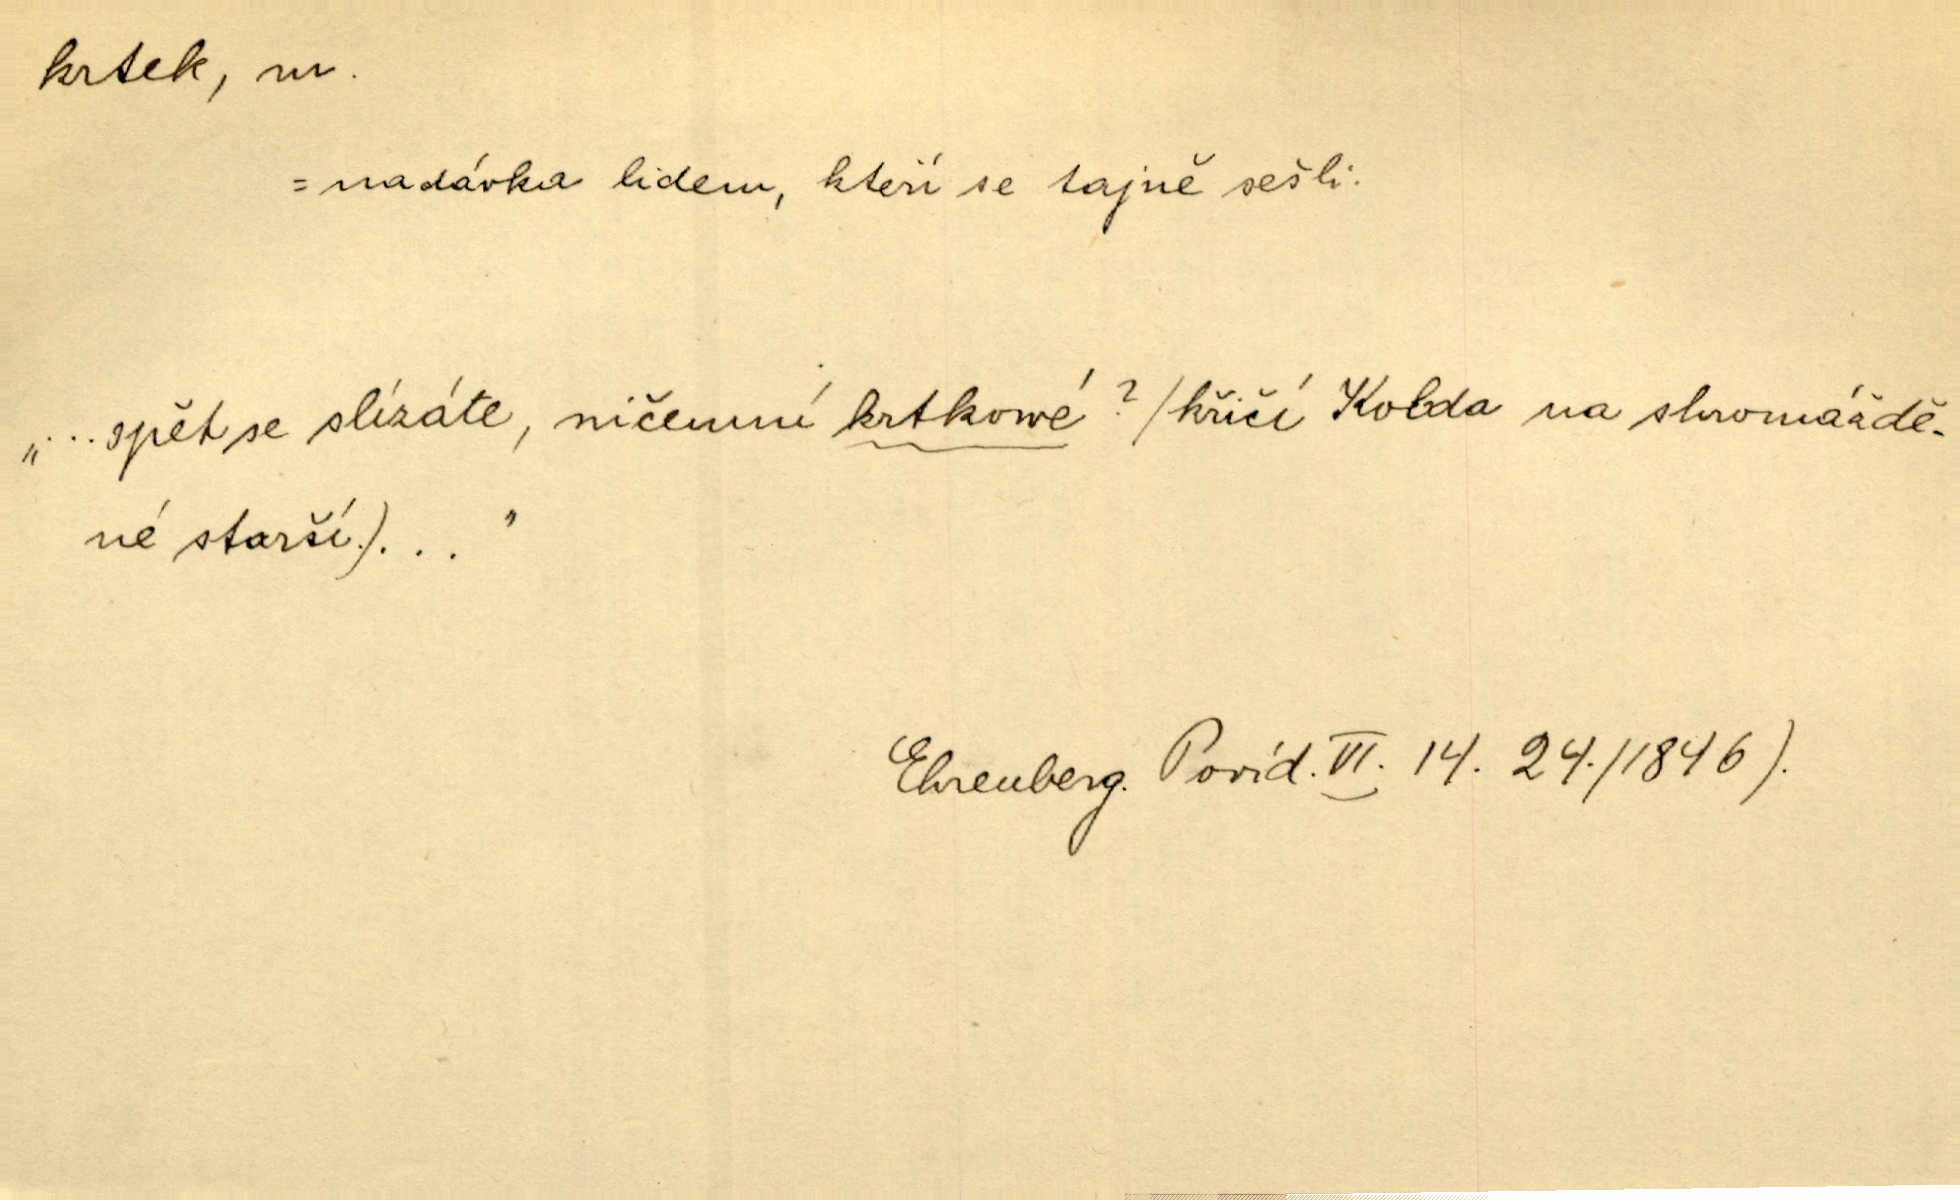 krtek, m.
= nadávka lidem, kteří se tajně sešli.
„...spět se slízáte, ničemní krtkowé? /křičí Kolda na shromáždě-
né starší)..."
Ehrenberg. Povíd. VI. 14. 24./1846).